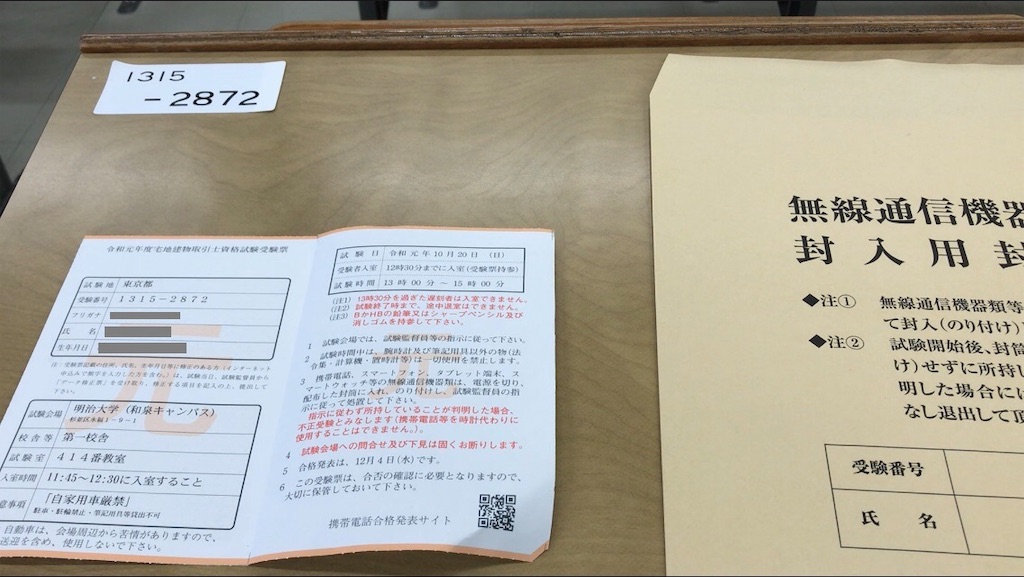 1315
-2872
令和元年度宅地建物取引士資格試験受験票
試験地 東京都
受験番号 1315-2872
フリガナ
氏 名
生年月日
注:受験票記載の住所、氏名、生年月日等に修正のある方(インターネット
申込みで略字を入力した方を含む。)は、試験当日、試験監督員から
「データ修正票」を受け取り、修正する項目を記入の上、提出して
下さい。
元
試験会場 明治大学(和泉キャンパス)
杉並区永福1-9-1
校舎等 第一校舎
試験室 414番教室
入室時間 11:45~12:30に入室すること
意事項 「自家用車厳禁」
駐車・駐輪禁止・筆記用具等貸出不可
自動車は、会場周辺から苦情がありますので、
送迎を含め、使用しないで下さい。
試験日 令和元年10月20日(日)
受験者入室 12時30分までに入室(受験票持参)
試験時間 13時00分~15時00分
(注1) 13時30分を過ぎた遅刻者は入室できません。
(注2) 試験終了時まで、途中退室はできません。
(注3) BかHBの鉛筆又はシャープペンシル及び
消しゴムを持参して下さい。
1 試験会場では、試験監督員等の指示に従って下さい。
2 試験時間中は、腕時計及び筆記用具以外の物(法
令集・計算機・置時計等)は一切使用を禁止します。
3 携帯電話、スマートフォン、タブレット端末、ス
マートウォッチ等の無線通信機器類は、電源を切り、
配布した封筒に入れ、のり付けし、試験監督員の指
示に従って処置して下さい。
指示に従わず所持していることが判明した場合、
不正受験とみなします(携帯電話等を時計代わりに
使用することはできません。)。
4 試験会場への問合せ及び下見は固くお断りします。
5 合格発表は、12月4日(水)です。
6 この受験票は、合否の確認に必要となりますので、
大切に保管しておいて下さい。
携帯電話合格発表サイト
無線通信機器
封入用封
◆注① 無線通信機器類等
て封入(のり付け)
◆注② 試験開始後、封筒
け)せずに所持し
明した場合には
なし退出して頂
受験番号
氏 名